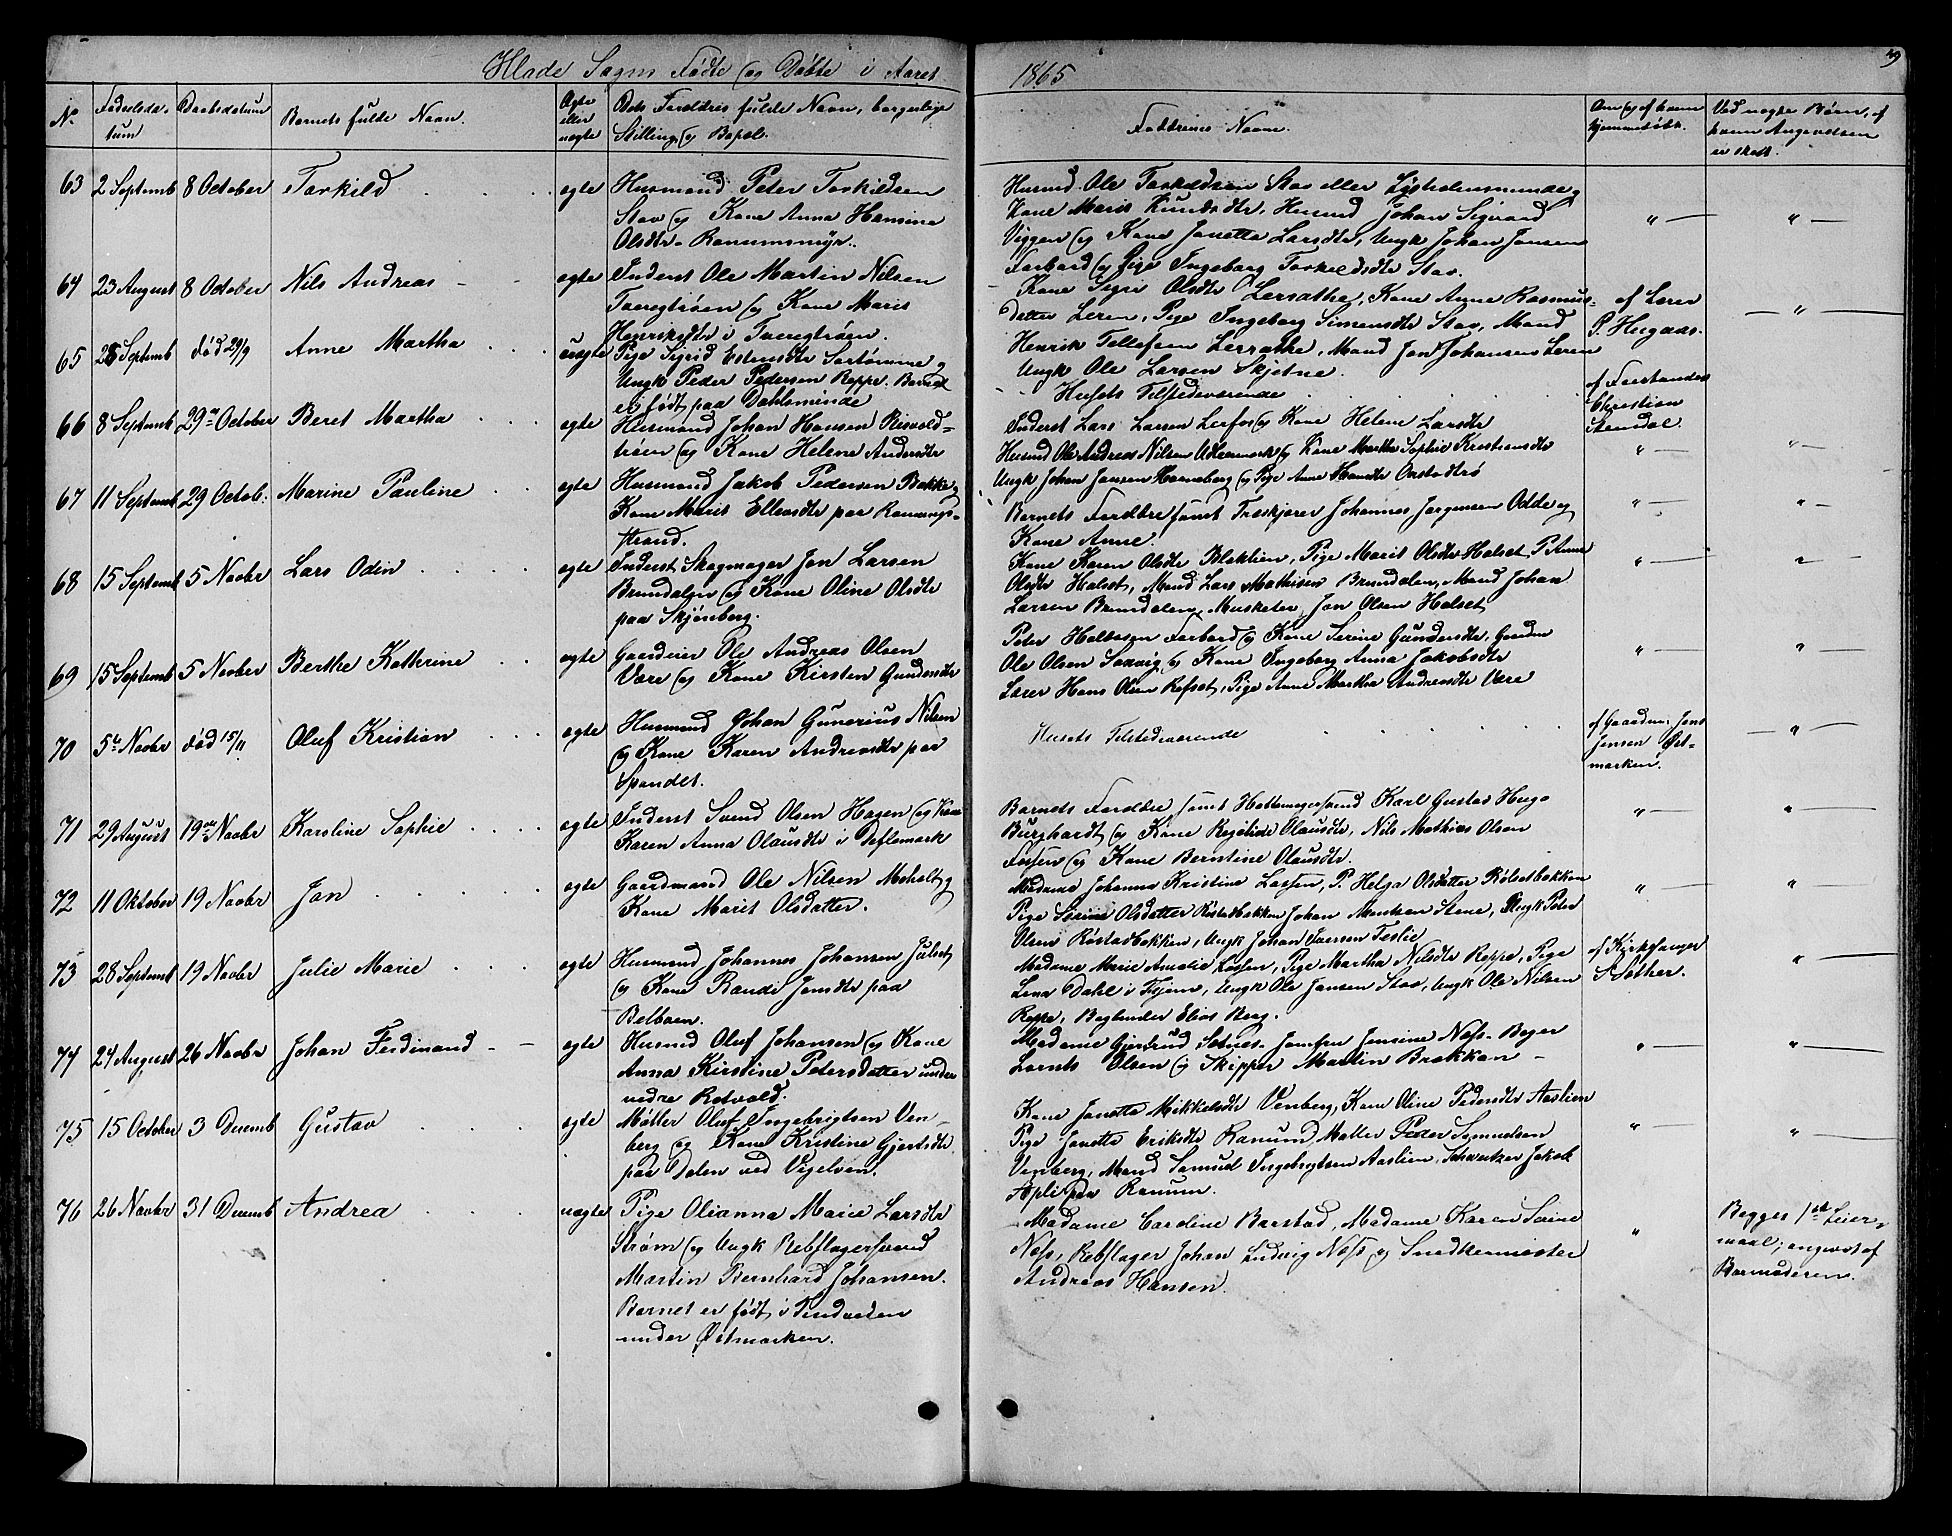 Hlade Sogns Fødte og Døbte i Aaret 1865
39
No
Fødselsda-
tum
Daabsdatum
Barnets fulde Navn.
Ægte
eller
uægte
Dets Forældres fulde Navn, borgerlige
Stilling og Bopæl.
Faddernes Navne.
Om og af hvem
hjemmedøbt.
Ved uægte Børn, af
hvem Angivelsen
er skeet.
63 2 Septemb 8 October Torkild ægte
Husmand Peter Torkildsen
Stav og Kone Anna Hansine
Olsdtr Ranumsmyr.
Husmd. Ole Torkildsen Stav eller Lysholmsminde og
Kone Marit Knudsdtr, Husmd Johan Sigvard
Viggen og Kone Janetta Larsdtr, Ungk Johan Jansen
Forbord og Pige Ingeborg Torkildsdtr Stav.
" "
64 23 August 8 October Nils Andreas ægte
Inderst Ole Martin Nilsen
og Kone Marit
Kone Sigri Olsdtr Lersathe, Kone Anne Rasmus-
datter Leren, Pige Ingeborg Simensdtr Stav, Mand
Henrik Tellefsen Lersathe, Mand Jon Johansen Leren
Ungk Ole Larsen Skjetne.
af Lærer
P. Hugaas.
"
65 25 Septemb død 29/9 Anne Martha uægte
Pige Sigrid Estensdtr og
Ungk Peder Pedersen Reppe. Barnet
er født paa Dahlsminde
Husets Tilstedeværende
af Forstander
Christian
Stendal.
66 8 Septemb 29de October Beret Martha ægte
Husmand Johan Hansen Risvold-
trøen og Kone Helene Andersdtr
Inderst Lars Larsen Lerfos og Kone Helene Larsdtr
Husmd Ole Andreas Nilsen og Kone Martha Sophie Kristiansdtr
Ungk Johan Jansen Hanneberg og Pige Anne
" "
67 11 Septemb 29 Octob. Marine Pauline ægte
Husmand Jakob Pedersen Bakke og
Kone Marit Ellevsdtr paa Ranungs-
strand.
Barnets Forældre samt Træskjærer Johannes Jørgensen Odde og
Kone Anne.
" "
68 15 Septemb 5 Novbr Lars Odin ægte
Inderst Skogmager Jon Larsen
Brundalen og Kone Oline Olsdtr
paa Skjønberg.
Kone Karen Olsdtr Blaklien, Pige Marit Olsdtr Halset P. Anne
Olsdtr Halset, Mand Lars Mathisen Brundalen, Mand Johan
Larsen Brundalen, Musketer Jon Olsen Halset
" "
69 15 Septemb 5 Novber Berthe Kathrine ægte
Gaardeier Ole Andreas Olsen
Være og Kone Kirsten Gundersdtr
Peter Forbord og Kone Serine Gundersdtr, Gaardm
Ole Olsen Saxvig og Kone Ingeborg Anna Jakobsdtr
Lærer Hans Olsen Refset, Pige Anne Martha Andersdtr Være
" "
70 5te Novbr død 15/11 Oluf Kristian ægte
Husmand Johan Gunerius Nilsen
og Kone Karen Andreasdtr paa
Spandet.
Husets Tilstedeværende
af Gaardm. Jens
Jensen Øst-
marken.
"
71 29 August 19de Novbr Karoline Sophie ægte
Inderst Svend Olsen Hagen og Kone
Karen Anna Olausdtr i Devlemark
Barnets Forældre samt Hattemagersvend Karl Gustav Hugo
Burghardt og Kone Regitine Olausdtr, Nils Mathias Olsen
Fossen og Kone Berntine Olausdtr.
" "
72 11 Oktober 19 Novbr Jon ægte
Gaardmand Ole Nilsen Moholt og
Kone Marit Olsdatter.
Madame Johanna Kristine Lassen, P. Helga Olsdatter Røstadbakken
Pige Serine Olsdatter Røstadbakken Johan Stene, Ungk Peter
Olsen Røstadbakken, Ungk Johan Iversen Teslie
" "
73 28 Septemb 19 Novbr Julie Marie ægte
Husmand Johannes Johansen Julset
og Kone Randi Jonsdtr paa
Belbuen.
Madame Marie Amalie Lassen, Pige Martha Nilsdtr Reppe, Pige
Lena Dahl i Thjem, Ungk Ole Jansen Stav, Ungk Ole Nilsen
Reppe, Boglender Elias Berg.
af Kirksanger
S. Sæther.
"
74 24 August 26 Novbr Johan Ferdinand ægte
Husmd Oluf Johansen og Kone
Anna Kirstine Petersdatter under
nedre Rotvold.
Madame Gjertrud Sotnes. Jomfru Jensine Næss. Bager
Lornts Olsen og Skipper Martin Brekken
" "
75 15 October 3 Decemb Gustav ægte
Møller Oluf Ingebrigtsen Ven-
berg og Kone Kristine Gjertsdtr
paa Dalen ved Vigelven.
Kone Janetta Mikkelsdtr Venberg, Kone Oline Pedersdtr Aaslien
Pige Janetta Eriksdtr Ranum, Møller Peder Samuelsen
Venberg, Mand Samuel Ingebrigtsen Aaslien, Schweitzer Jakob
Apli paa Ranum.
" "
76 26 Novbr 31 Decemb Andrea uægte
Pige Olianna Marie Larsdtr
Strøm og Ungk Rebslagersvend
Martin Bernhard Johansen.
Barnet er født i Tindveden
under Østmarken.
Madame Caroline Barstad, Madame Karen Sevine
Næss, Rebslager Johan Ludvig Næss og Snedkermester
Andreas Hansen.
"
Begges 1ste Leier-
maal; angivet af
Barmoderen.